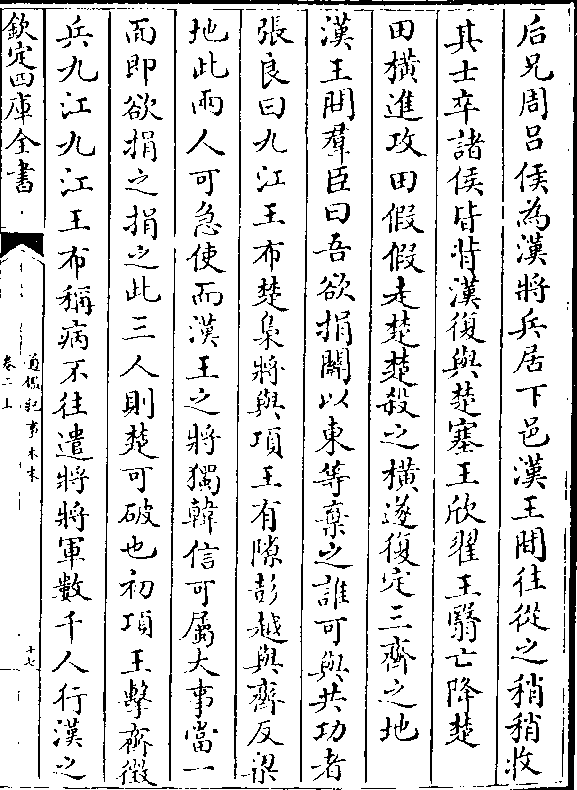 后兄周呂侯為漢將兵居下邑漢王間往從之稍稍收
其士卒諸侯皆背漢復與楚塞王欣翟王翳亡降楚
田橫進攻田假假走楚楚殺之橫遂復定三齊之地
漢王問羣臣曰吾欲捐關以東等棄之誰可與共功者
張良曰九江王布楚梟將與項王有隙彭越與齊反梁
地此兩人可急使而漢王之將獨韓信可屬大事當一
面即欲捐之捐之此三人則楚可破也初項王擊齊徵
兵九江九江王布稱病不往遣將將軍數千人行漢之
欽定四庫全書
通鑑紀事本末
卷二上
十七